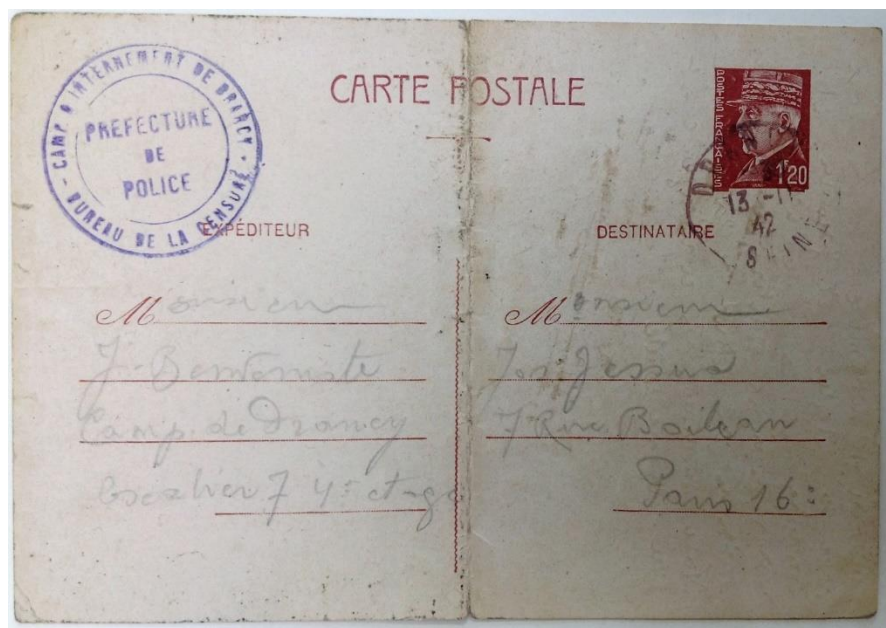 CAMP D'INTERNEMENT DE DRANCY
PREFECTURE
DE
POLICE
BUREAU DE LA CENSURE
CARTE POSTALE
POSTES FRANÇAISES
1F20
13 -11
42
SEINE
EXPÉDITEUR
Monsieur
J. Benveniste
Camp de Drancy
Escalier 7 4e etage
DESTINATAIRE
Monsieur
Jessua
7 Rue Boileau
Paris 16e